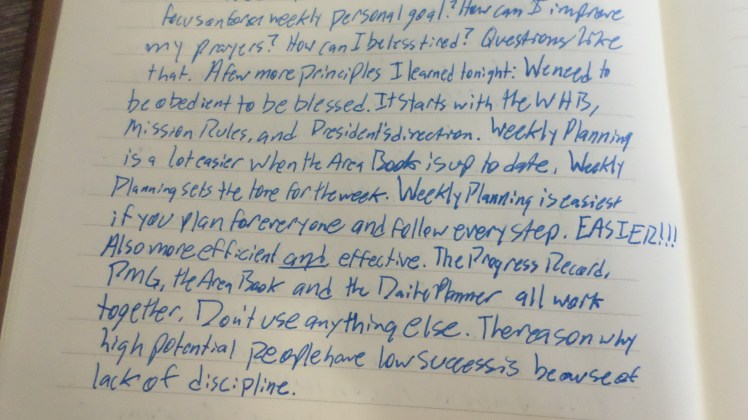 focus on for a weekly personal goal? How can I improve
my prayers? How can I be less tired? Questions like
that. A few more principles I learned tonight: We need to
be obedient to be blessed. It starts with the WHB,
Mission Rules, and President's direction. Weekly Planning
is a lot easier when the Area Book is up to date. Weekly
Planning sets the tone for the week. Weekly Planning is easiest
if you plan for everyone and follow every step. EASIER!!!
Also more efficient and effective. The Progress Record,
PMG, the Area Book and the Daily Planner all work
together. Don't use anything else. The reason why
high potential people have low success is because of
lack of discipline.